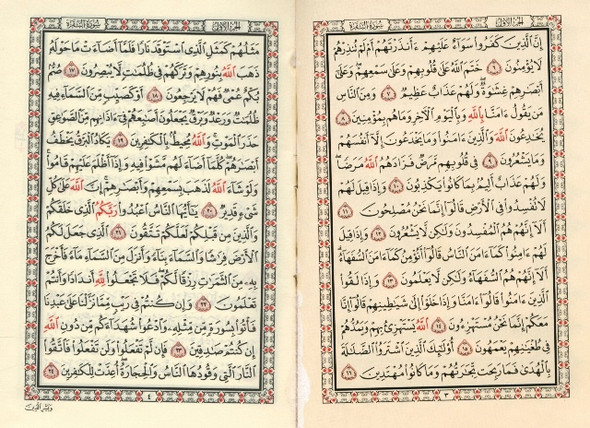 الجزء الأول سُورَةُ البَقَرَة
إِنَّ ٱلَّذِينَ كَفَرُوا۟ سَوَآءٌ عَلَيْهِمْ ءَأَنذَرْتَهُمْ أَمْ لَمْ تُنذِرْهُمْ
لَا يُؤْمِنُونَ ٦ خَتَمَ ٱللَّهُ عَلَىٰ قُلُوبِهِمْ وَعَلَىٰ سَمْعِهِمْ وَعَلَىٰٓ
أَبْصَـٰرِهِمْ غِشَـٰوَةٌ وَلَهُمْ عَذَابٌ عَظِيمٌ ٧ وَمِنَ ٱلنَّاسِ
مَن يَقُولُ ءَامَنَّا بِٱللَّهِ وَبِٱلْيَوْمِ ٱلْـَٔاخِرِ وَمَا هُم بِمُؤْمِنِينَ ٨
يُخَـٰدِعُونَ ٱللَّهَ وَٱلَّذِينَ ءَامَنُوا۟ وَمَا يَخْدَعُونَ إِلَّآ أَنفُسَهُمْ
وَمَا يَشْعُرُونَ ٩ فِى قُلُوبِهِم مَّرَضٌ فَزَادَهُمُ ٱللَّهُ مَرَضًا
وَلَهُمْ عَذَابٌ أَلِيمٌۢ بِمَا كَانُوا۟ يَكْذِبُونَ ١٠ وَإِذَا قِيلَ لَهُمْ
لَا تُفْسِدُوا۟ فِى ٱلْأَرْضِ قَالُوٓا۟ إِنَّمَا نَحْنُ مُصْلِحُونَ ١١
أَلَآ إِنَّهُمْ هُمُ ٱلْمُفْسِدُونَ وَلَـٰكِن لَّا يَشْعُرُونَ ١٢ وَإِذَا قِيلَ
لَهُمْ ءَامِنُوا۟ كَمَآ ءَامَنَ ٱلنَّاسُ قَالُوٓا۟ أَنُؤْمِنُ كَمَآ ءَامَنَ ٱلسُّفَهَآءُ
أَلَآ إِنَّهُمْ هُمُ ٱلسُّفَهَآءُ وَلَـٰكِن لَّا يَعْلَمُونَ ١٣ وَإِذَا لَقُوا۟
ٱلَّذِينَ ءَامَنُوا۟ قَالُوٓا۟ ءَامَنَّا وَإِذَا خَلَوْا۟ إِلَىٰ شَيَـٰطِينِهِمْ قَالُوٓا۟ إِنَّا
مَعَكُمْ إِنَّمَا نَحْنُ مُسْتَهْزِءُونَ ١٤ ٱللَّهُ يَسْتَهْزِئُ بِهِمْ وَيَمُدُّهُمْ
فِى طُغْيَـٰنِهِمْ يَعْمَهُونَ ١٥ أُو۟لَـٰٓئِكَ ٱلَّذِينَ ٱشْتَرَوُا۟ ٱلضَّلَـٰلَةَ
بِٱلْهُدَىٰ فَمَا رَبِحَت تِّجَـٰرَتُهُمْ وَمَا كَانُوا۟ مُهْتَدِينَ ١٦
٣
الجزء الأول سُورَةُ البَقَرَة
مَثَلُهُمْ كَمَثَلِ ٱلَّذِى ٱسْتَوْقَدَ نَارًا فَلَمَّآ أَضَآءَتْ مَا حَوْلَهُۥ
ذَهَبَ ٱللَّهُ بِنُورِهِمْ وَتَرَكَهُمْ فِى ظُلُمَـٰتٍ لَّا يُبْصِرُونَ ١٧ صُمٌّۢ
بُكْمٌ عُمْىٌ فَهُمْ لَا يَرْجِعُونَ ١٨ أَوْ كَصَيِّبٍ مِّنَ ٱلسَّمَآءِ فِيهِ
ظُلُمَـٰتٌ وَرَعْدٌ وَبَرْقٌ يَجْعَلُونَ أَصَـٰبِعَهُمْ فِىٓ ءَاذَانِهِم مِّنَ ٱلصَّوَٰعِقِ
حَذَرَ ٱلْمَوْتِ وَٱللَّهُ مُحِيطٌۢ بِٱلْكَـٰفِرِينَ ١٩ يَكَادُ ٱلْبَرْقُ يَخْطَفُ
أَبْصَـٰرَهُمْ كُلَّمَآ أَضَآءَ لَهُم مَّشَوْا۟ فِيهِ وَإِذَآ أَظْلَمَ عَلَيْهِمْ قَامُوا۟
وَلَوْ شَآءَ ٱللَّهُ لَذَهَبَ بِسَمْعِهِمْ وَأَبْصَـٰرِهِمْ إِنَّ ٱللَّهَ عَلَىٰ كُلِّ
شَىْءٍ قَدِيرٌ ٢٠ يَـٰٓأَيُّهَا ٱلنَّاسُ ٱعْبُدُوا۟ رَبَّكُمُ ٱلَّذِى خَلَقَكُمْ
وَٱلَّذِينَ مِن قَبْلِكُمْ لَعَلَّكُمْ تَتَّقُونَ ٢١ ٱلَّذِى جَعَلَ لَكُمُ
ٱلْأَرْضَ فِرَٰشًا وَٱلسَّمَآءَ بِنَآءً وَأَنزَلَ مِنَ ٱلسَّمَآءِ مَآءً فَأَخْرَجَ
بِهِۦ مِنَ ٱلثَّمَرَٰتِ رِزْقًا لَّكُمْ فَلَا تَجْعَلُوا۟ لِلَّهِ أَندَادًا وَأَنتُمْ
تَعْلَمُونَ ٢٢ وَإِن كُنتُمْ فِى رَيْبٍ مِّمَّا نَزَّلْنَا عَلَىٰ عَبْدِنَا
فَأْتُوا۟ بِسُورَةٍ مِّن مِّثْلِهِۦ وَٱدْعُوا۟ شُهَدَآءَكُم مِّن دُونِ ٱللَّهِ
إِن كُنتُمْ صَـٰدِقِينَ ٢٣ فَإِن لَّمْ تَفْعَلُوا۟ وَلَن تَفْعَلُوا۟ فَٱتَّقُوا۟
ٱلنَّارَ ٱلَّتِى وَقُودُهَا ٱلنَّاسُ وَٱلْحِجَارَةُ أُعِدَّتْ لِلْكَـٰفِرِينَ ٢٤
٤
وبشر الذين